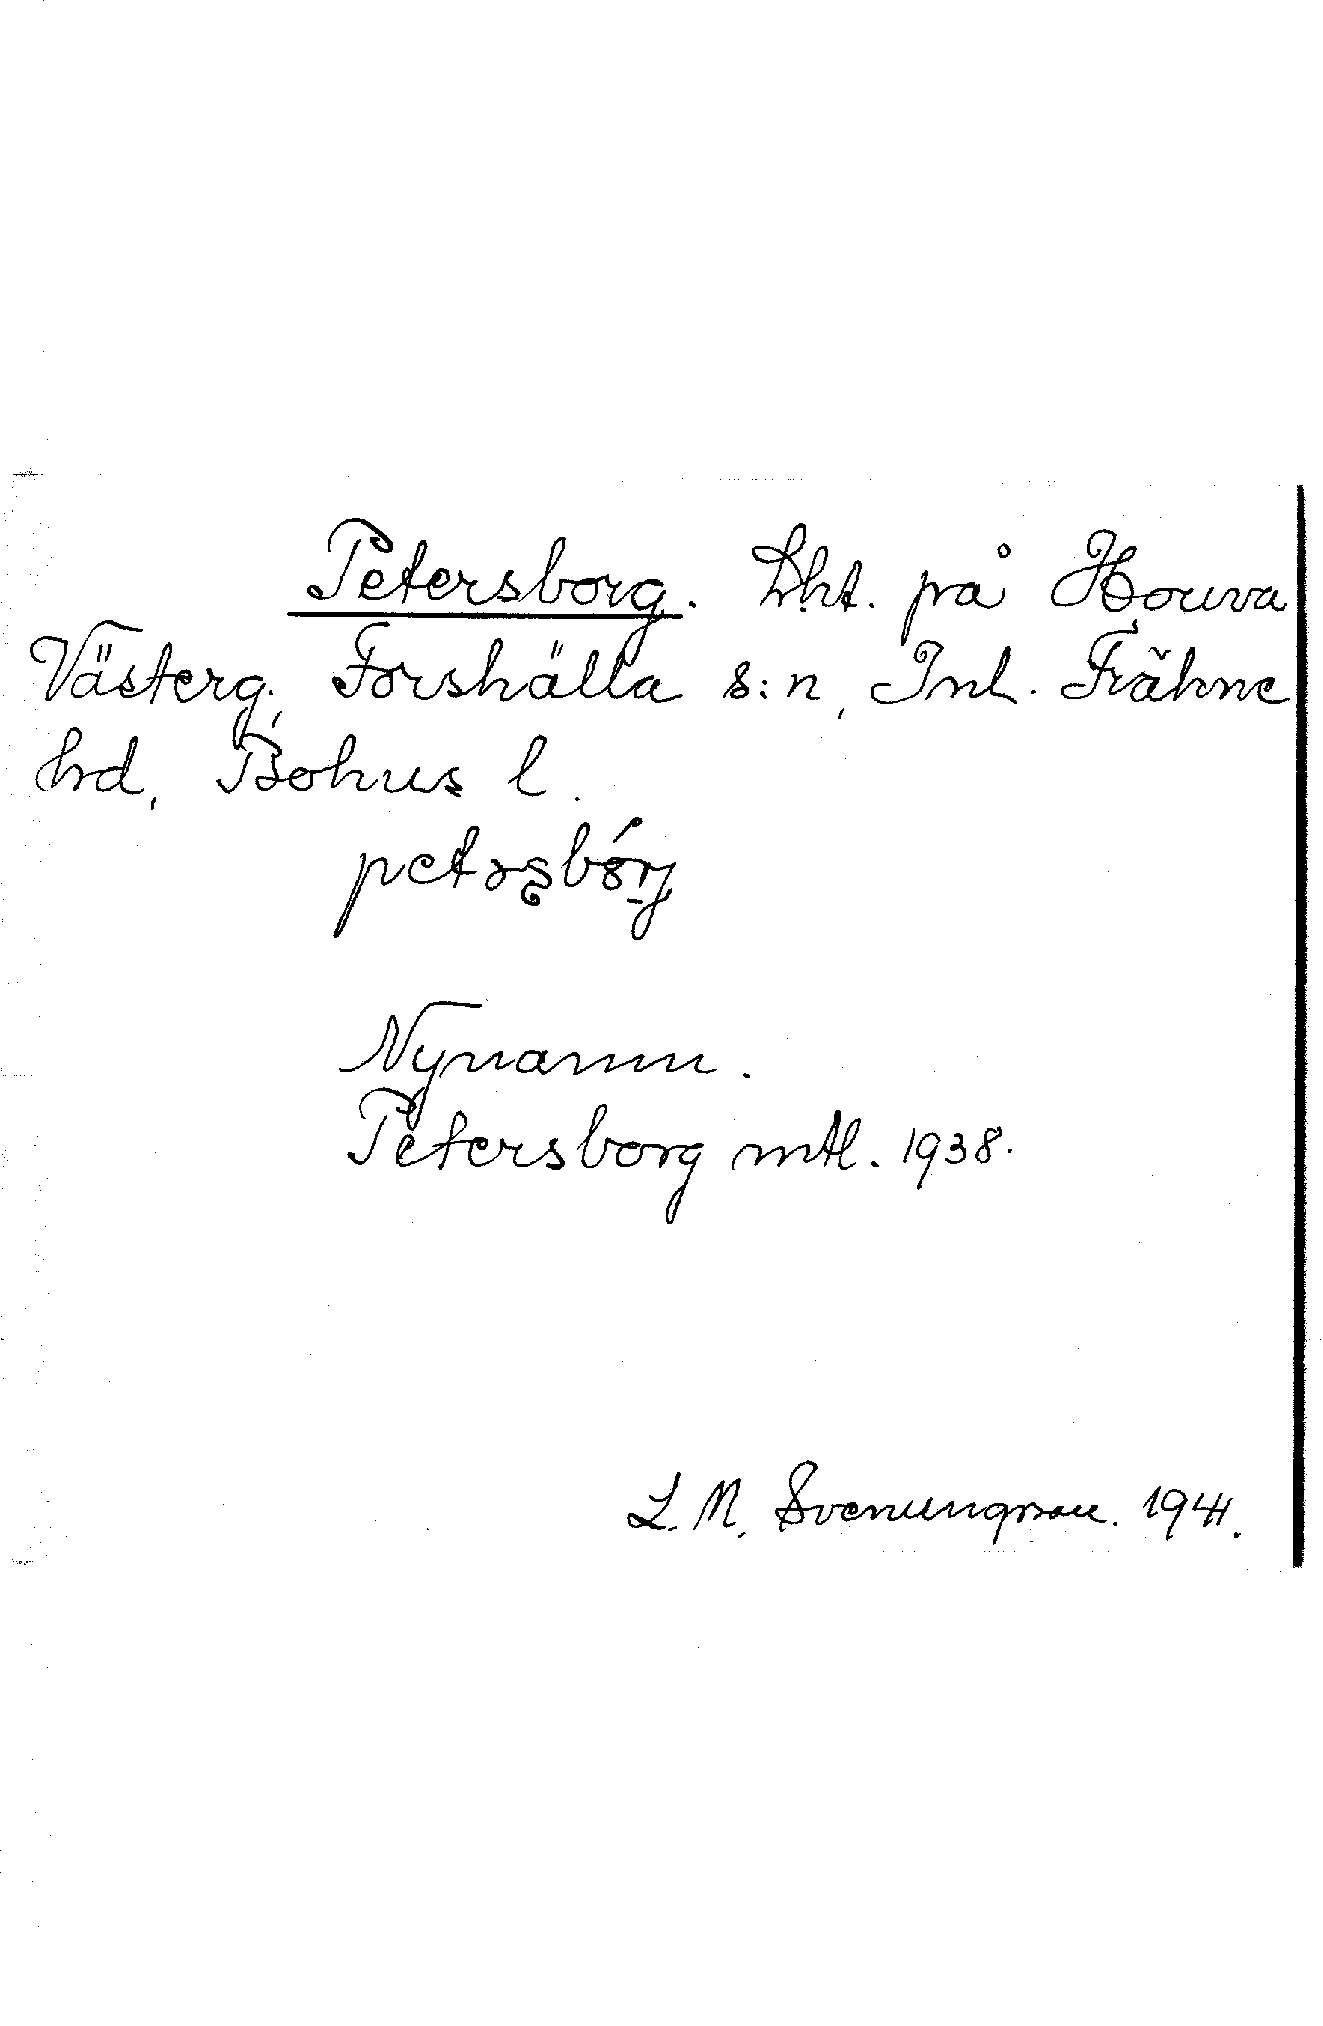 Petersborg. Lht. på Houva
Västerg., Forshälla s:n, Inl. Fräkne
hrd, Bohus l.
Nynamn.
Petersborg mtl. 1938.
L. M. Svenungsson. 1941.